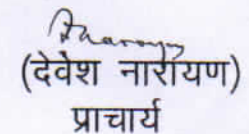 (देवेश नारायण)
प्राचार्य